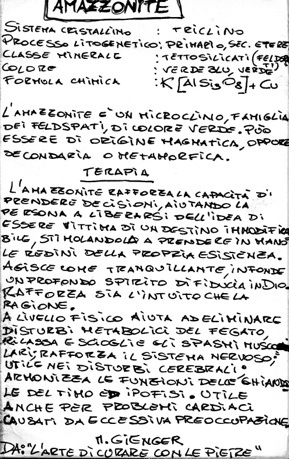 AMAZZONITE
SISTEMA CRISTALLINO : TRICLINO
PROCESSO LITOGENETICO: PRIMARIO, SEC. ETERE
CLASSE MINERALE : TETTOSILICATI (FELDSPATI)
COLORE : VERDE BLU, VERDE
FORMULA CHIMICA : K[AlSi3O8]+Cu
L'AMAZZONITE È UN MICROCLINO, FAMIGLIA
DEI FELDSPATI, DI COLORE VERDE. PUÒ
ESSERE DI ORIGINE MAGMATICA, OPPURE
SECONDARIA O METAMORFICA.
TERAPIA
L'AMAZZONITE RAFFORZA LA CAPACITÀ DI
PRENDERE DECISIONI, AIUTANDO LA
PERSONA A LIBERARSI DELL'IDEA DI
ESSERE VITTIMA DI UN DESTINO IMMODIFICA
BILE, STIMOLANDOLA A PRENDERE IN MANO
LE REDINI DELLA PROPRIA ESISTENZA.
AGISCE COME TRANQUILLANTE, INFONDE
UN PROFONDO SPIRITO DI FIDUCIA IN DIO.
RAFFORZA SIA L'INTUITO CHE LA
RAGIONE.
A LIVELLO FISICO AIUTA AD ELIMINARE
DISTURBI METABOLICI DEL FEGATO,
RILASSA E SCIOGLIE GLI SPASMI MUSCO
LARI, RAFFORZA IL SISTEMA NERVOSO;
UTILE NEI DISTURBI CEREBRALI.
ARMONIZZA LE FUNZIONI DELLE GHIANDO
LE DEL TIMO ED IPOFISI. UTILE
ANCHE PER PROBLEMI CARDIACI
CAUSATI DA ECCESSIVA PREOCCUPAZIONE
M. GIENGER
DA: "L'ARTE DI CURARE CON LE PIETRE"